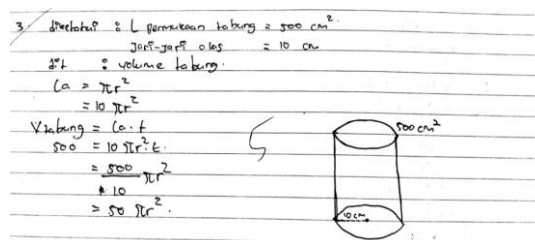 3. diketahui : L permukaan tabung = 500 cm².
Jari-jari alas = 10 cm
dit : volume tabung.
La = πr²
= 10 πr²
Vtabung = La . t
500 = 10 πr² . t.
= 500/10 πr²
= 50 πr².
500 cm²
10 cm